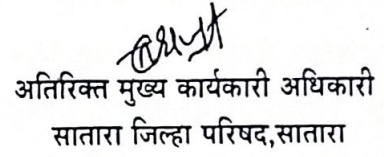 अतिरिक्त मुख्य कार्यकारी अधिकारी
सातारा जिल्हा परिषद,सातारा